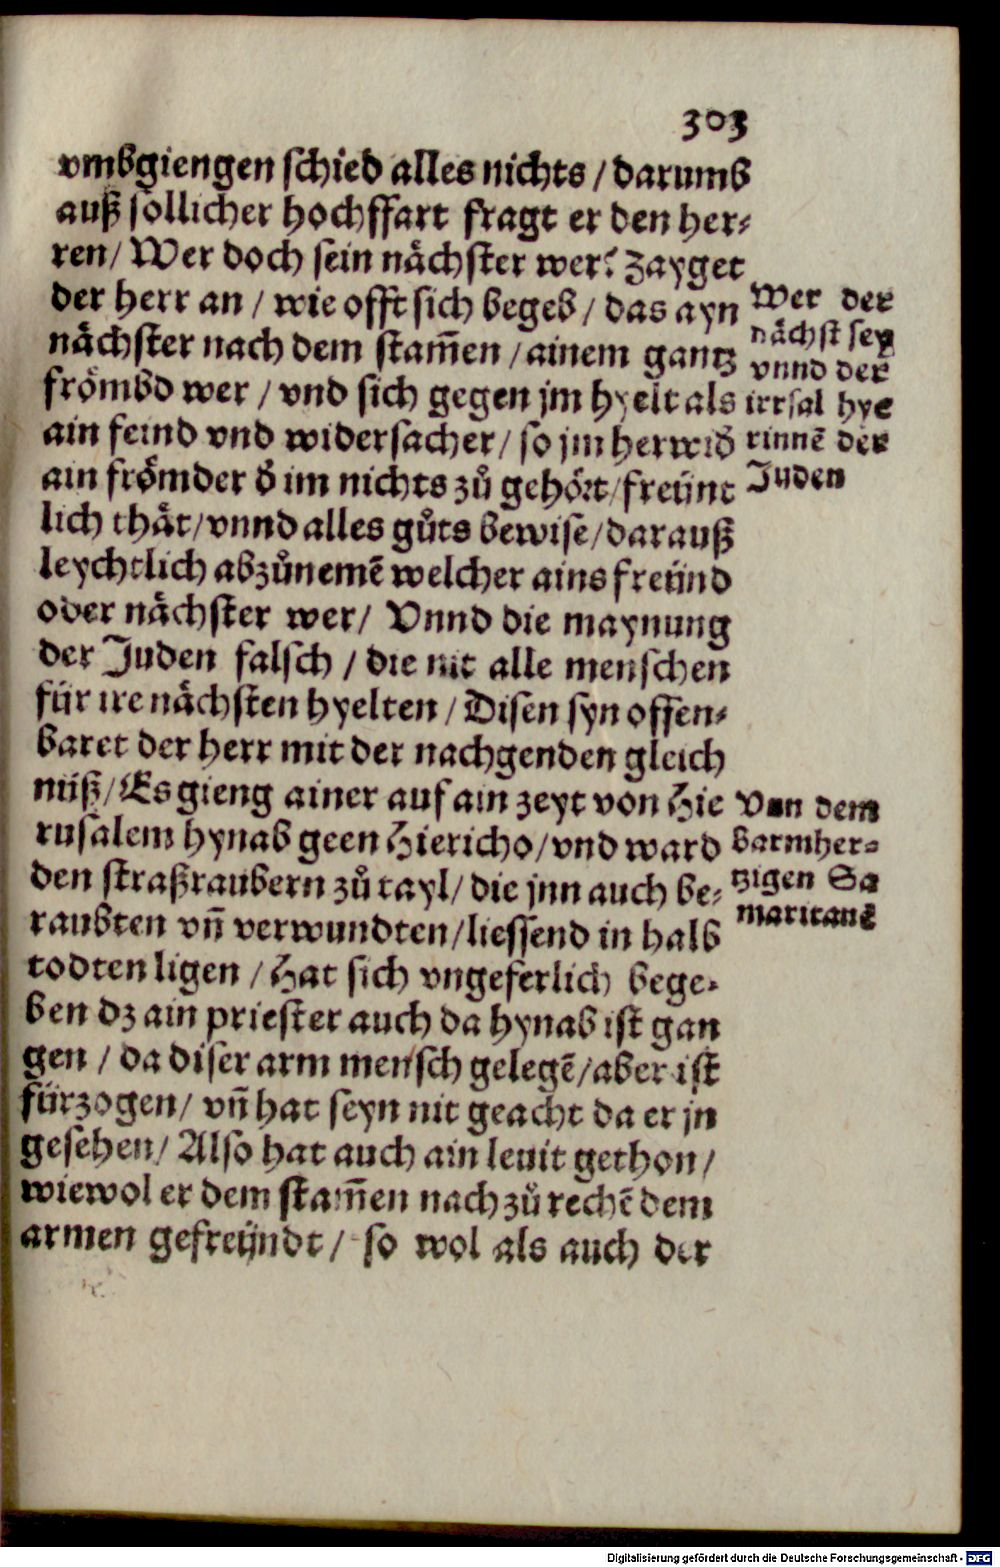 303
vmbgiengen schied alles nichts / darumb
auß sollicher hochffart fragt er den her⸗
ren / Wer doch sein nächster wer? Zayget
der herr an / wie offt sich begeb / das ayn
nächster nach dem stam̃en / ainem gantz
frömbd wer / vnd sich gegen jm hyelt als
ain feind vnd widersacher / so jm herwid̕
ain frömder d̕ im nichts zů gehört / freünt
lich thät / vnnd alles gůts bewise / darauß
leychtlich abzůnemẽ welcher ains freünd
oder nächster wer / Vnnd die maynung
der Juden falsch / die nit alle menschen
für ire nächsten hyelten / Disen syn offen⸗
baret der herr mit der nachgenden gleich
nüß / Es gieng ainer auf ain zeyt von Hie
rusalem hynab geen Hiericho / vnd ward
den straßraubern zů tayl / die jnn auch be⸗
raubten vñ verwundten / liessend in halb
todten ligen / Hat sich vngeferlich bege⸗
ben dz ain priester auch da hynab ist gan
gen / da diser arm mensch gelegẽ / aber ist
fürzogen / vñ hat seyn nit geacht da er jn
gesehen / Also hat auch ain leuit gethon /
wiewol er dem stam̃en nach zů rechẽ dem
armen gefreyndt / so wol als auch der
Wer der
nächst sey
vnnd der
irrsal hye
rinnẽ der
Juden
Von dem
barmher⸗
tzigen Sa
maritanẽ
Digitalisierung gefördert durch die Deutsche Forschungsgemeinschaft - DFG